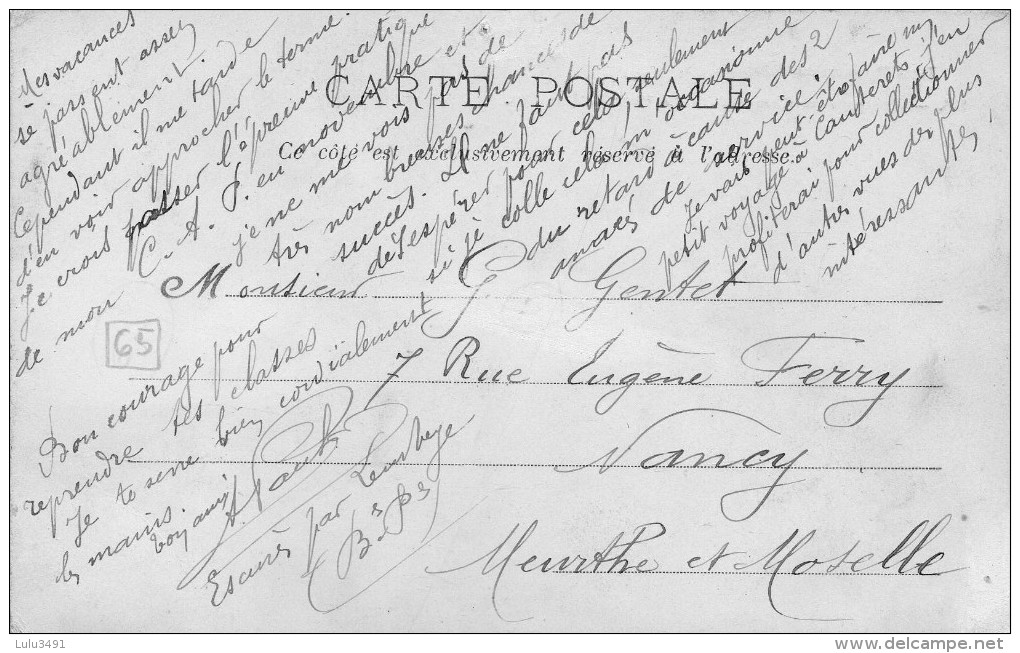 CARTE POSTALE
Ce côté est exclusivement réservé à l'adresse.
Monsieur G. Gentet
7 Rue Eugène Ferry
Nancy
Meurthe et Moselle
65
Mes vacances
se passent assez
agréablement
Cependant il me tarde
d'en voir approcher le terme.
Je crois passer l'épreuve pratique
de mon C. A. P. en novembre et
je ne me vois pas de
très nombreuses chances de
succès. Il ne faut pas
désespérer pour cela, seulement
si je colle cela m'occasionne
du retard à cause des 2
années de service.
Je vais peut-être faire un
petit voyage à Cauterets j'en
profiterai pour collectionner
d'autres vues des plus
intéressantes.
Bon courage pour
reprendre tes classes
Je te serre bien cordialement
les mains.
ton ami
Escurès par Lembeye
(Bses Pées)
Lulu3491
www.delcampe.net